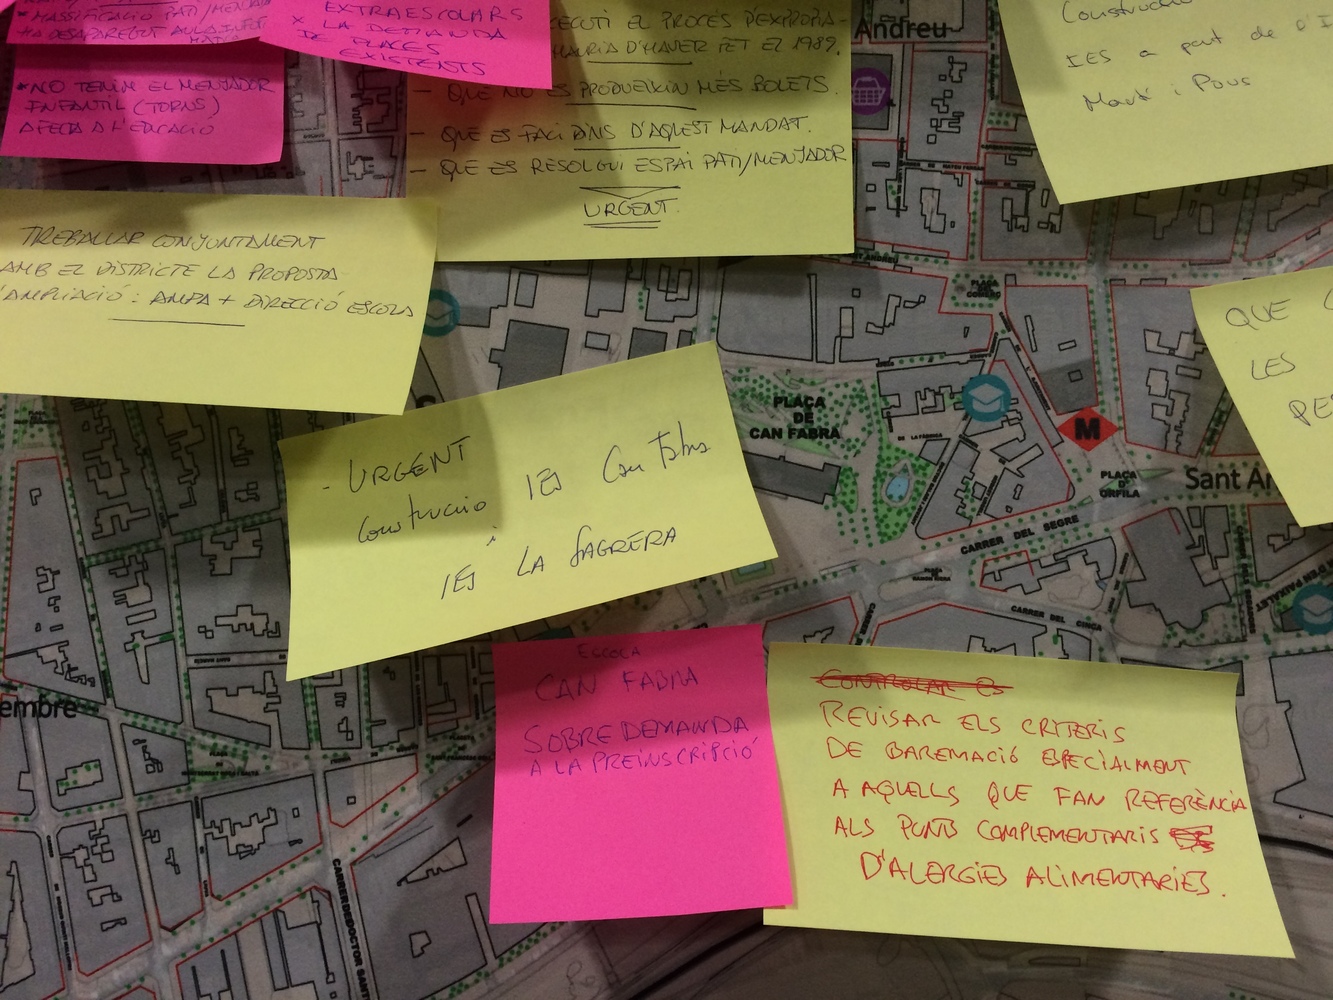 * MASSIFICACIÓ PATI/MENJADOR
HA DESAPAREGUT AULA
* NO TENIM EL MENJADOR
INFANTIL (TORNS)
AFECTA A L'EDUCACIÓ
EXTRAESCOLARS
* LA DEMANDA
DE PLACES
EXISTENTS
EL PROCÉS D'EXPROPIA-
D'HAVER FET EL 1989.
- QUE NO ES PRODUEIXIN MÉS BOLETS.
- QUE ES FACI DINS D'AQUEST MANDAT.
- QUE ES RESOLGUI ESPAI PATI/MENJADOR
URGENT.
Andreu
Construcció
IES a part de
Martí i Pous
TREBALLAR CONJUNTAMENT
AMB EL DISTRICTE LA PROPOSTA
D'AMPLIACIÓ: AMPA + DIRECCIÓ ESCOLA
QUE
LES
- URGENT
Construcció IES Can Fabra
i
IES LA SAGRERA
PLAÇA
DE
CAN FABRA
M
PLAÇA
D'
ORFILA
Sant An
CARRER DEL SEGRE
CARRER DEL CINCA
embre
CARRER DE DOCTOR SANT
ESCOLA
CAN FABRA
SOBREDEMANDA
A LA PREINSCRIPCIÓ
CONTROLAR ES
REVISAR ELS CRITERIS
DE BAREMACIÓ ESPECIALMENT
A AQUELLS QUE FAN REFERÈNCIA
ALS PUNTS COMPLEMENTARIS
D'ALERGIES ALIMENTARIES.